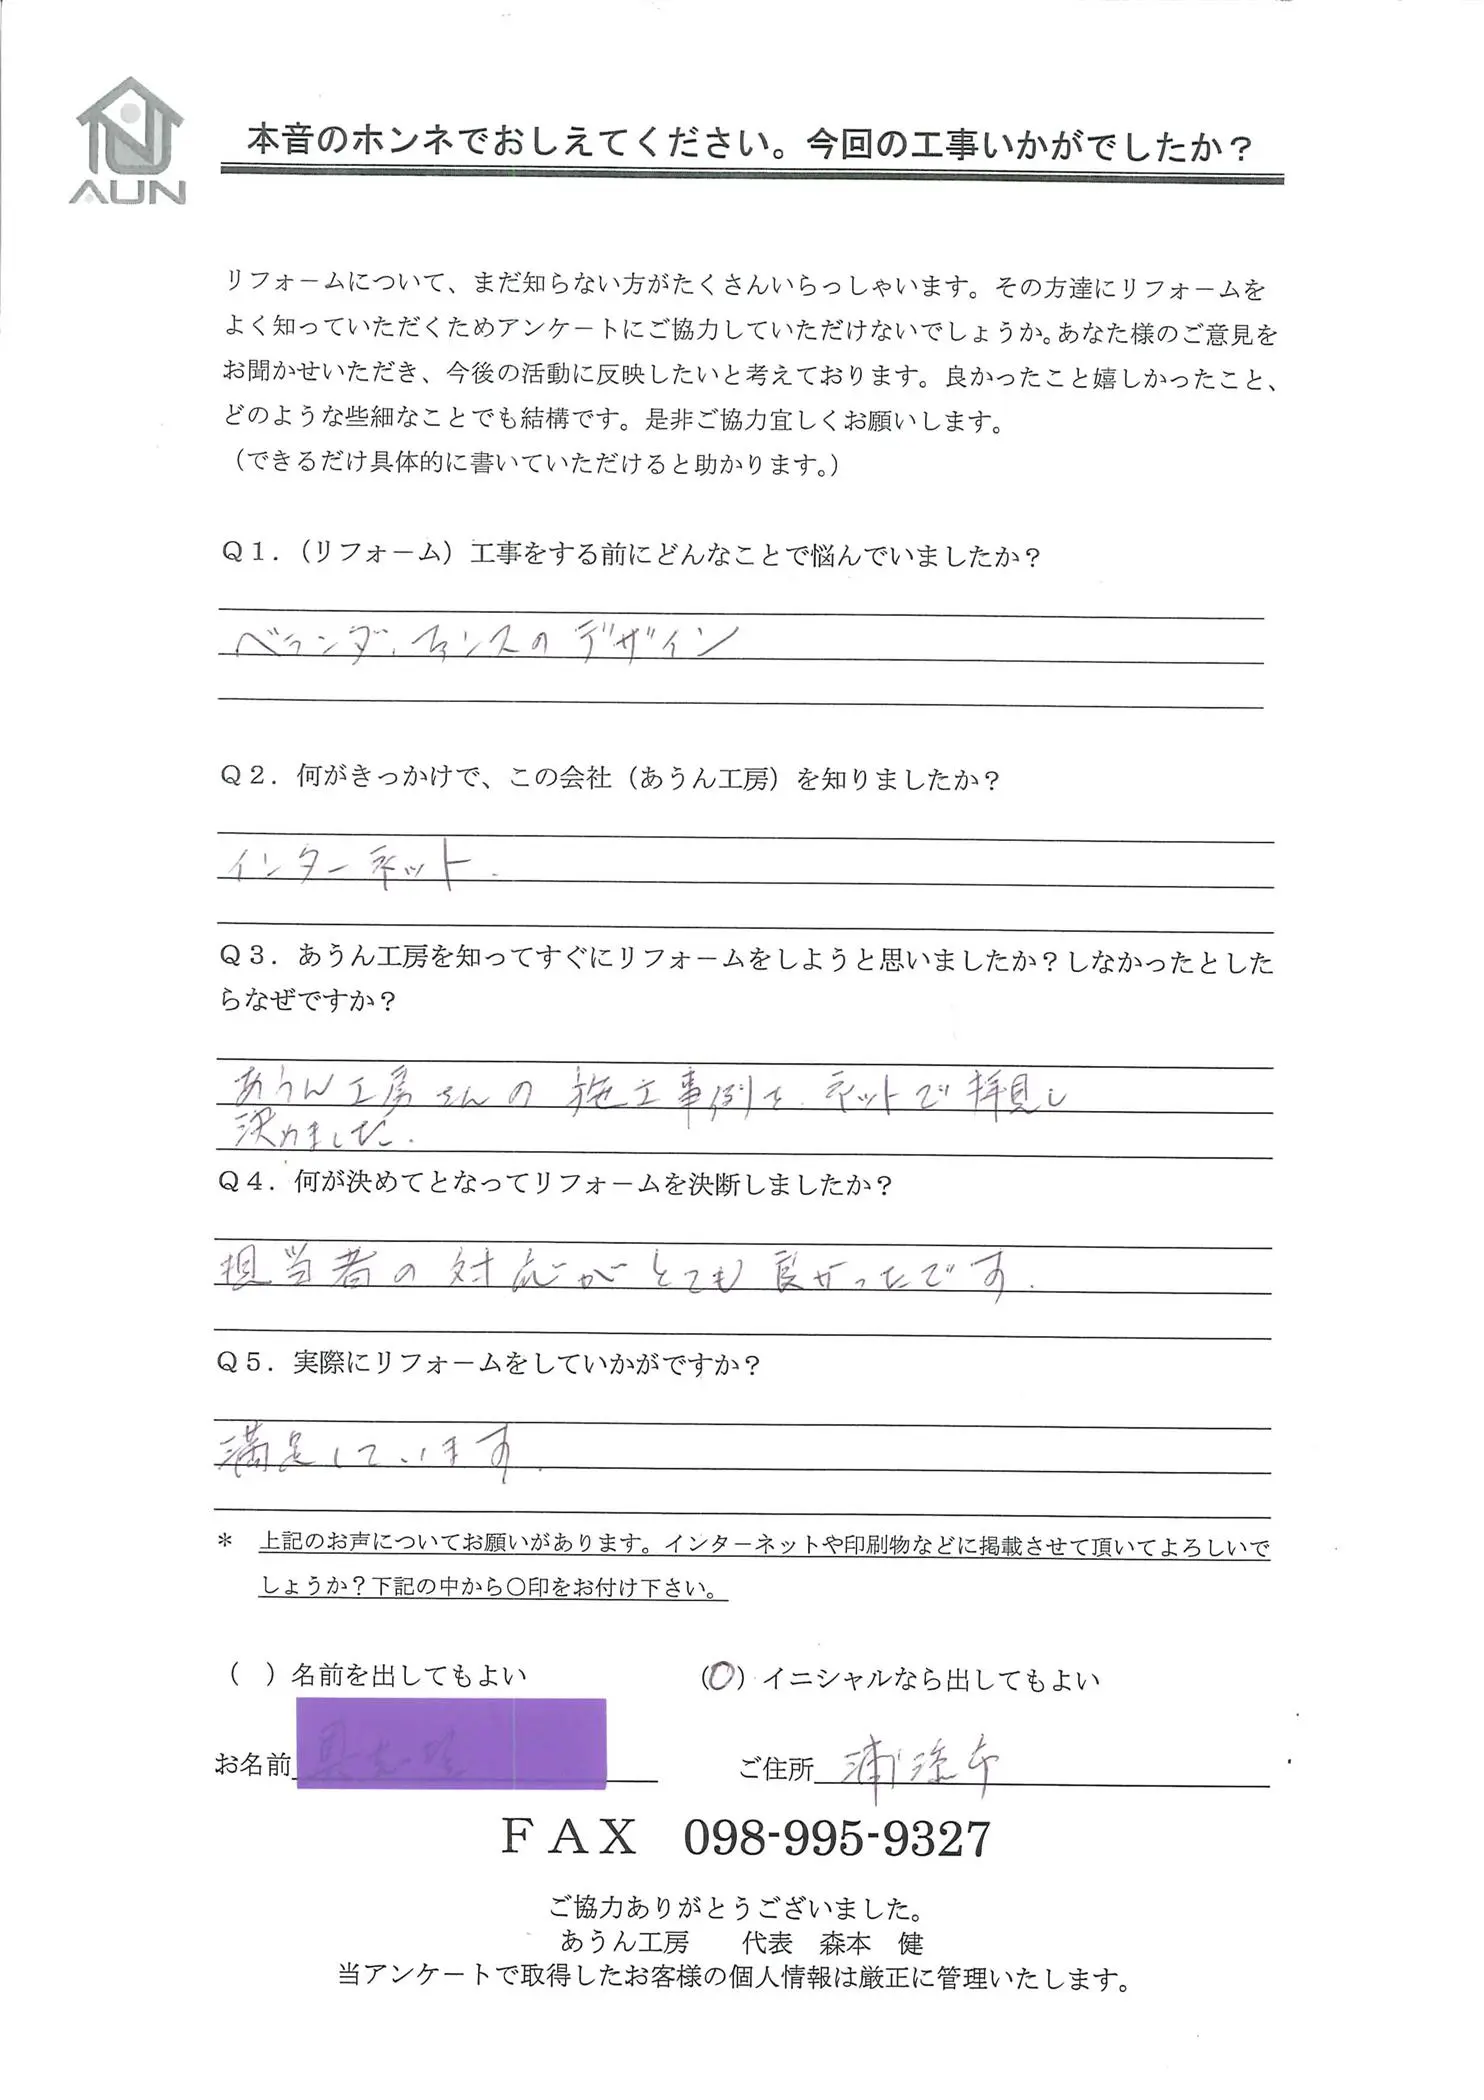 AUN
本音のホンネでおしえてください。今回の工事いかがでしたか？
リフォームについて、まだ知らない方がたくさんいらっしゃいます。その方達にリフォームを
よく知っていただくためアンケートにご協力していただけないでしょうか。あなた様のご意見を
お聞かせいただき、今後の活動に反映したいと考えております。良かったこと嬉しかったこと、
どのような些細なことでも結構です。是非ご協力宜しくお願いします。
（できるだけ具体的に書いていただけると助かります。）
Ｑ１．（リフォーム）工事をする前にどんなことで悩んでいましたか？
ベランダ、フェンスのデザイン
Ｑ２．何がきっかけで、この会社（あうん工房）を知りましたか？
インターネット.
Ｑ３．あうん工房を知ってすぐにリフォームをしようと思いましたか？しなかったとした
らなぜですか？
あうん工房さんの施工事例を、ネットで拝見し
決めました.
Ｑ４．何が決めてとなってリフォームを決断しましたか？
担当者の対応がとても良かったです.
Ｑ５．実際にリフォームをしていかがですか？
満足しています.
＊　上記のお声についてお願いがあります。インターネットや印刷物などに掲載させて頂いてよろしいで
しょうか？下記の中から〇印をお付け下さい。
（　）名前を出してもよい　（〇）イニシャルなら出してもよい
お名前　ご住所 浦添市
ＦＡＸ　098-995-9327
ご協力ありがとうございました。
あうん工房　代表　森本　健
当アンケートで取得したお客様の個人情報は厳正に管理いたします。